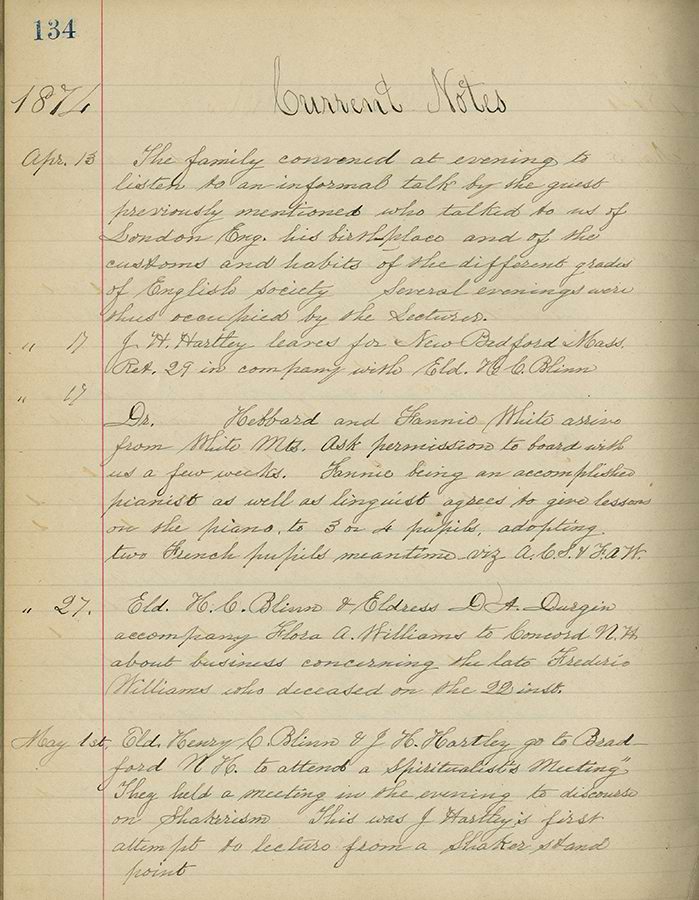 134
1874
Current Notes
Apr. 13 The family convened at evening to
listen to an informal talk by the guest
previously mentioned who talked to us of
London Eng. his birth-place and of the
customs and habits of the different grades
of English society Several evenings were
thus occupied by the Lecturer.
" 17 J. H. Hartley leaves for New Bedford Mass.
Ret. 29 in company with Eld. H. C. Blinn
" 19
Dr. Hebbard and Fannie White arrive
from White Mts. Ask permission to board with
us a few weeks. Fannie being an accomplished
pianist as well as linguist agrees to give lessons
on the piano, to 3 or 4 pupils, adopting
two French pupils meantime viz A. C. S. & F. A W.
" 27. Eld. H. C. Blinn & Eldress D A. Durgin
accompany Flora A. Williams to Concord N. H.
about business concerning the late Frederic
Williams who deceased on the 22 inst.
May 1st, Eld. Henry C. Blinn & J. H. Hartley go to Brad-
ford N H. to attend a Spiritualist's Meeting"
They held a meeting in the evening to discourse
on Shakerism This was J Hartley's first
attempt to lecture from a Shaker stand
point